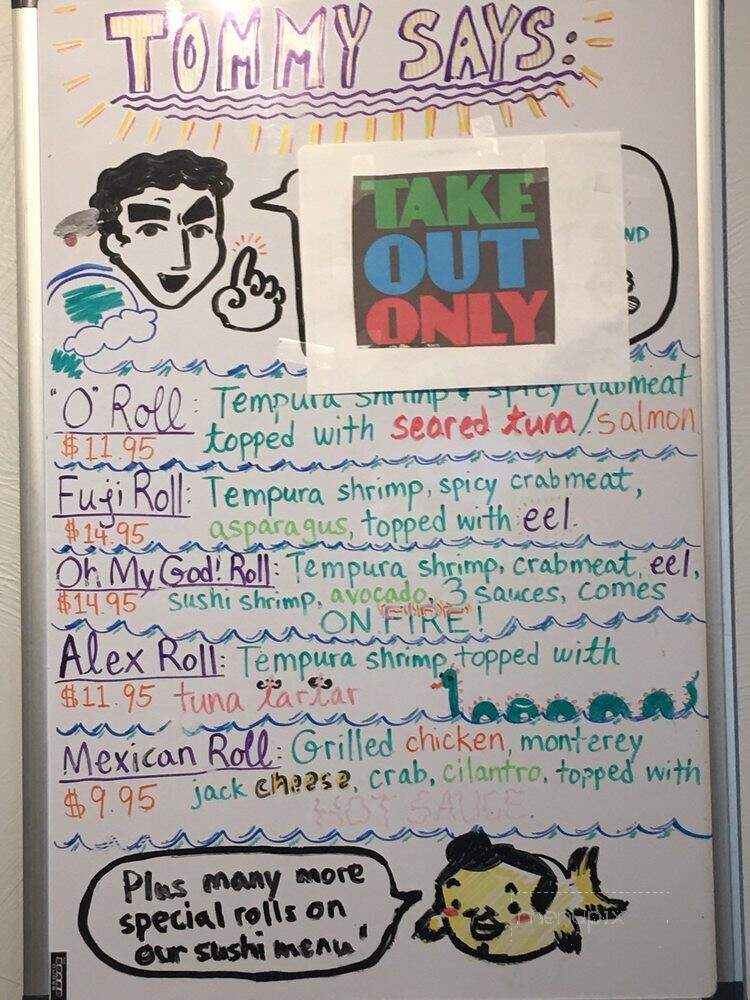 TOMMY SAYS:
TAKE
OUT
ONLY
ND
"O" Roll: Tempura shrimp & spicy crabmeat
$11.95 topped with seared tuna/salmon
Fuji Roll: Tempura shrimp, spicy crabmeat,
$14.95 asparagus, topped with eel.
Oh My God! Roll: Tempura shrimp, crabmeat, eel,
$14.95 sushi shrimp, avocado, 3 sauces, comes
ON FIRE!
Alex Roll: Tempura shrimp, topped with
$11.95 tuna tartar
Mexican Roll: Grilled chicken, monterey
$9.95 jack cheese, crab, cilantro, topped with
HOT SAUCE.
Plus many more
special rolls on
our sushi menu!
menupix